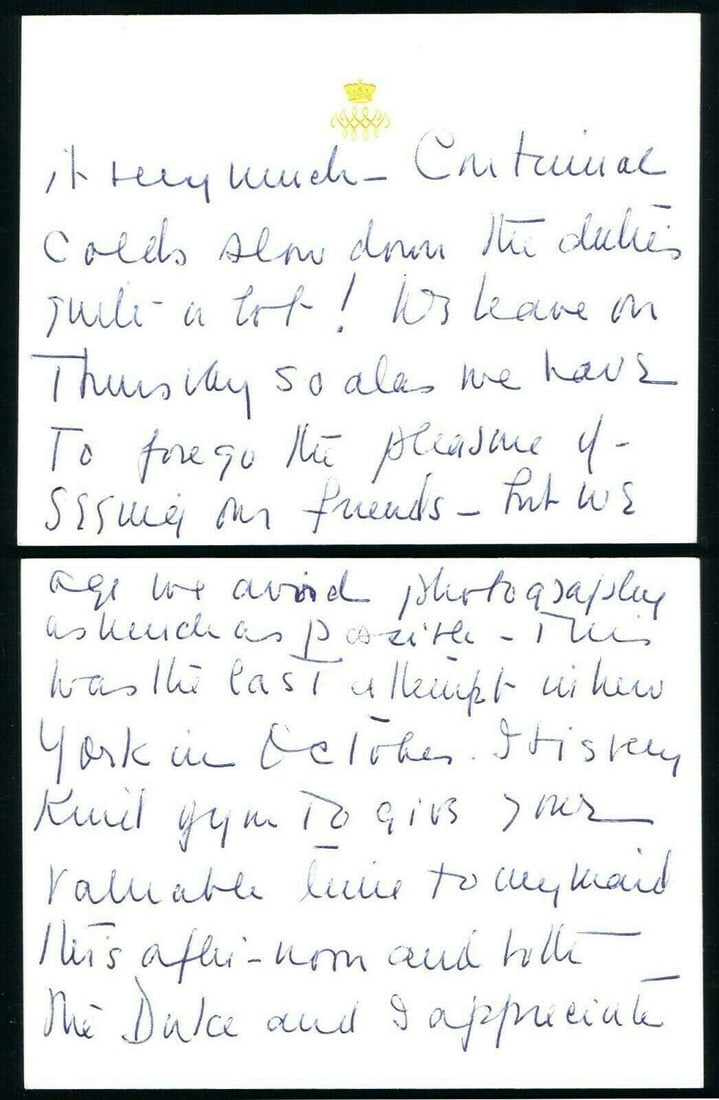 it very much – Continual
Colds slow down the duties
quite a lot! We leave on
Thursday so alas we have
To forego the pleasure of –
Seeing our friends – but we
age we avoid photography
as much as possible – This
was the last attempt in New
York in October. It is very
Kind of you To give your
valuable time to my maid
this after-noon and both
the Duke and I appreciate